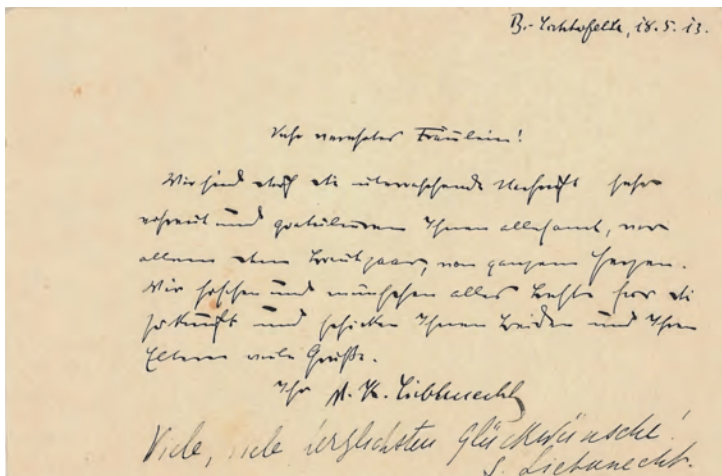 B.-Lichterfelde, 18.5.13.
Sehr verehrtes Fräulein!
Wir sind durch die überraschende Nachricht sehr
erfreut und gratulieren Ihnen allesamt, vor
allem dem Brautpaar, von ganzem Herzen.
Wir hoffen und wünschen alles Beste für die
Zukunft und schicken Ihnen beiden und Ihren
Eltern viele Grüße.
Ihr K. Liebknecht
Viele, viele herzlichsten Glückwünsche!
S. Liebknecht.